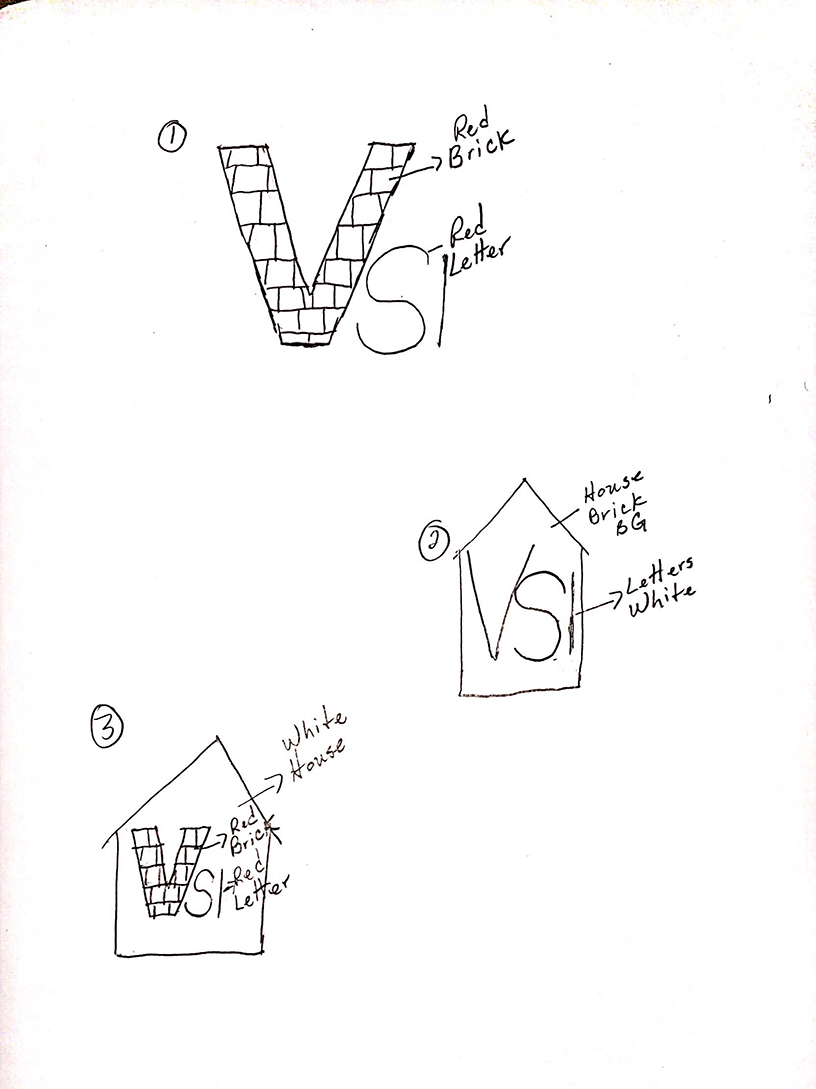 1
Red
Brick
VSI
Red
Letter
2
House
Brick
BG
VSI
Letters
White
3
White
House
VSI
Red
Brick
Red
Letter